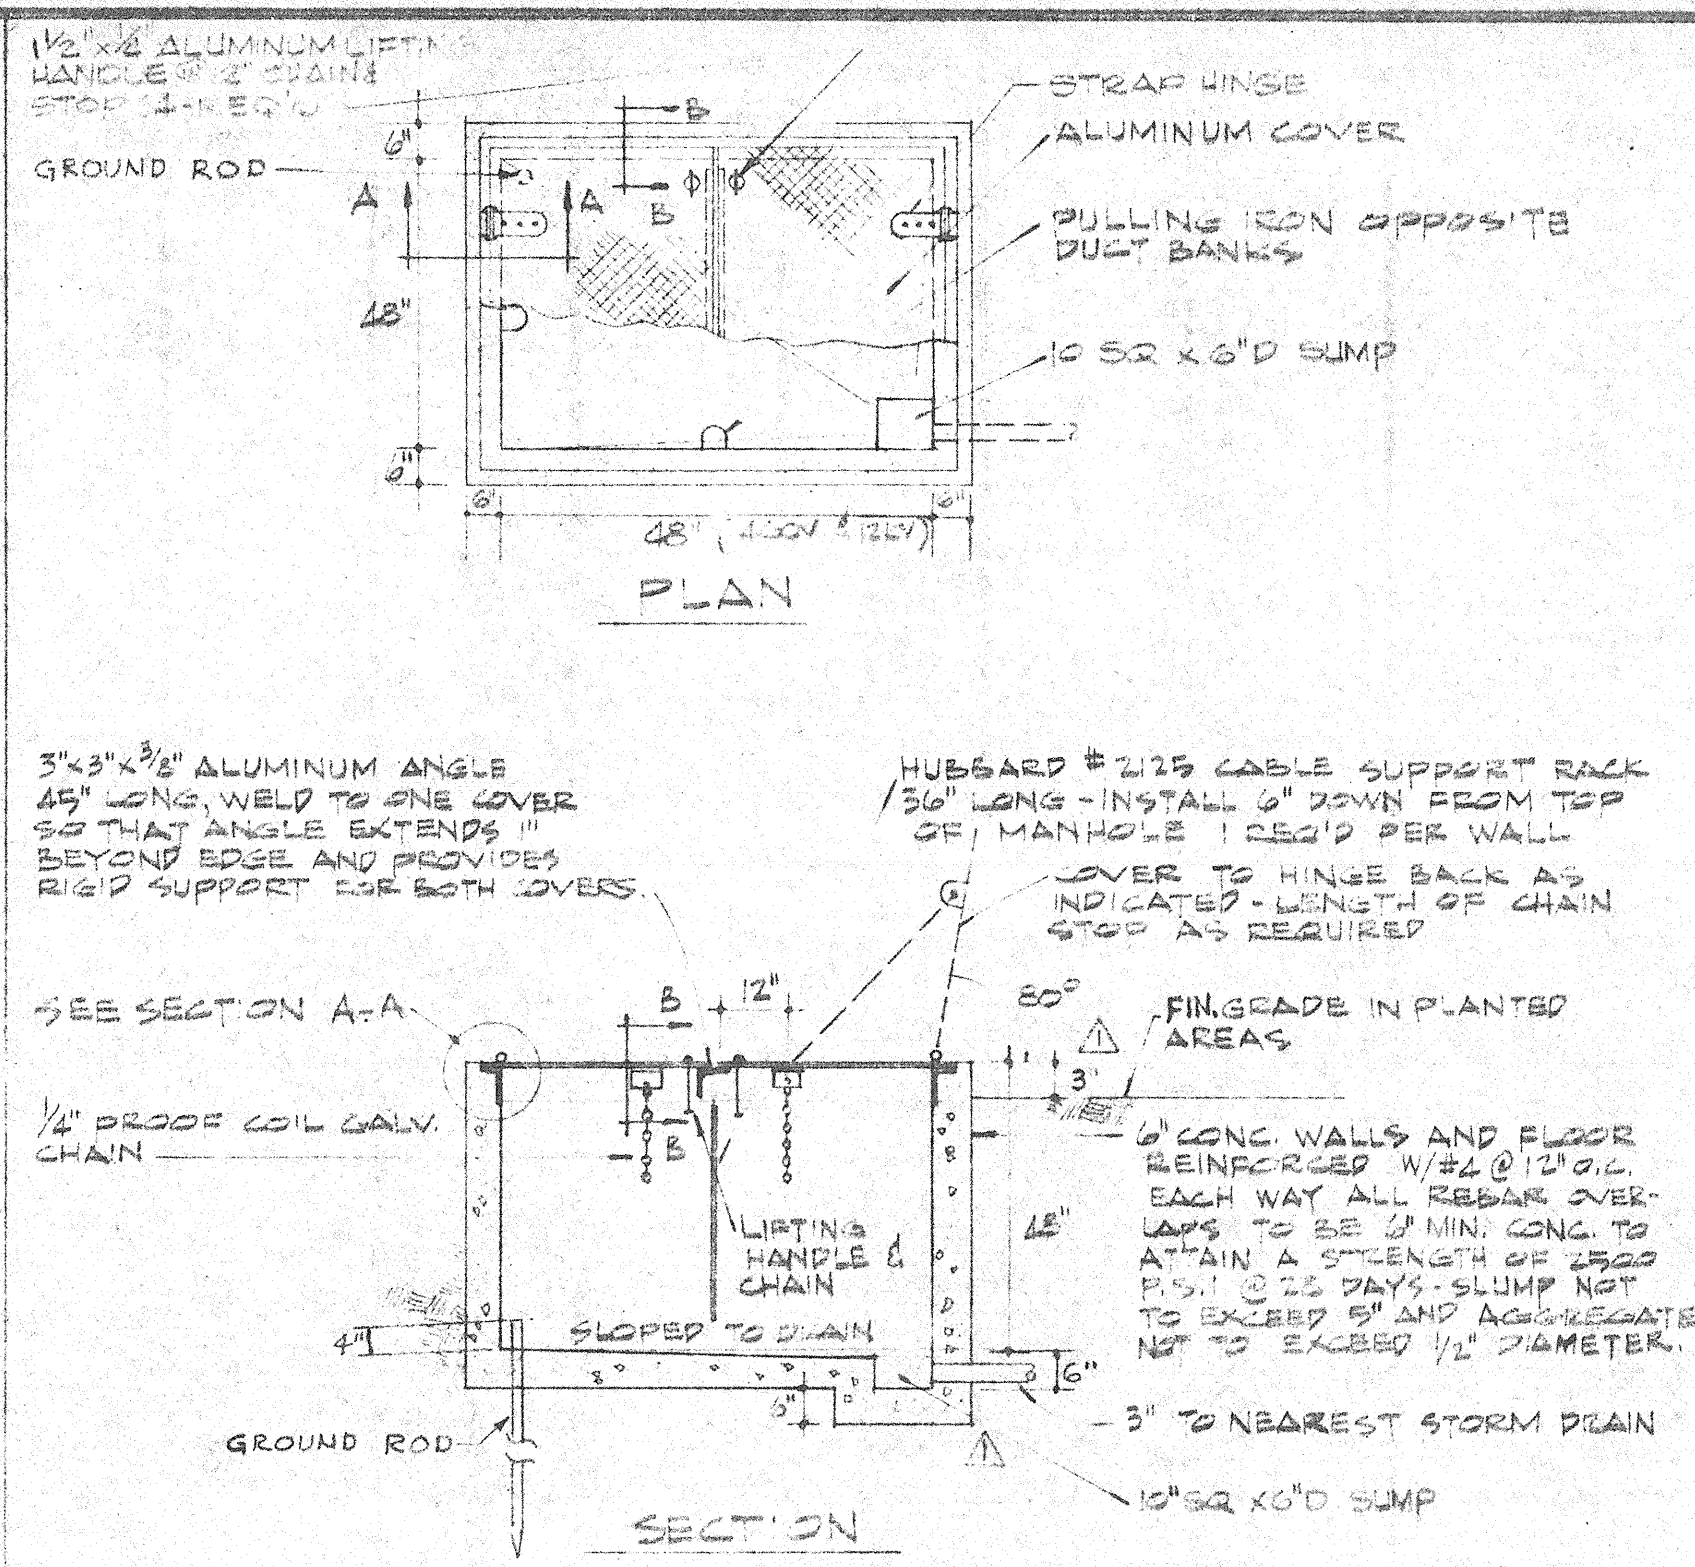 1 1/2" x 1/4 ALUMINUM LIFTING
HANDLE CHAIN &
STOP REQ'D
GROUND ROD
6"
B
A
A
B
48"
6"
6"
48"
6"
STRAP HINGE
ALUMINUM COVER
PULLING IRON OPPOSITE
DUCT BANKS
10 SQ x 6"D SUMP
PLAN
3"x3"x3/8" ALUMINUM ANGLE
45" LONG, WELD TO ONE COVER
SO THAT ANGLE EXTENDS 1"
BEYOND EDGE AND PROVIDES
RIGID SUPPORT FOR BOTH COVERS.
HUBBARD # 2125 CABLE SUPPORT RACK
36" LONG - INSTALL 6" DOWN FROM TOP
OF MANHOLE 1 REQ'D PER WALL
COVER TO HINGE BACK AS
INDICATED - LENGTH OF CHAIN
STOP AS REQUIRED
SEE SECTION A-A
B
12"
80°
FIN. GRADE IN PLANTED
AREAS
1
3"
1/4" PROOF COIL GALV.
CHAIN
B
6" CONC. WALLS AND FLOOR
REINFORCED W/#4 @ 12" O.C.
EACH WAY ALL REBAR OVER-
LAPS TO BE 6" MIN. CONC. TO
ATTAIN A STRENGTH OF 2500
P.S.I @ 28 DAYS - SLUMP NOT
TO EXCEED 5" AND AGGREGATE
NOT TO EXCEED 1/2" DIAMETER.
48"
LIFTING
HANDLE &
CHAIN
4"
SLOPED TO DRAIN
6"
6"
3" TO NEAREST STORM DRAIN
GROUND ROD
1
10" SQ x 6"D SUMP
SECTION